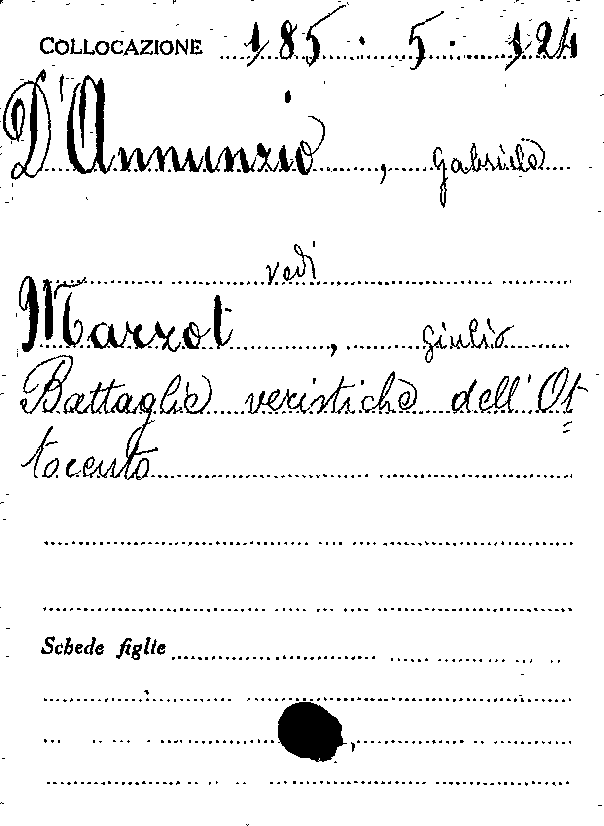 COLLOCAZIONE 185. 5. 124
D'Annunzio, Gabriele
vedi
Marzot, Giulio
Battaglie veristiche dell'Ot=
tocento
Schede figlie